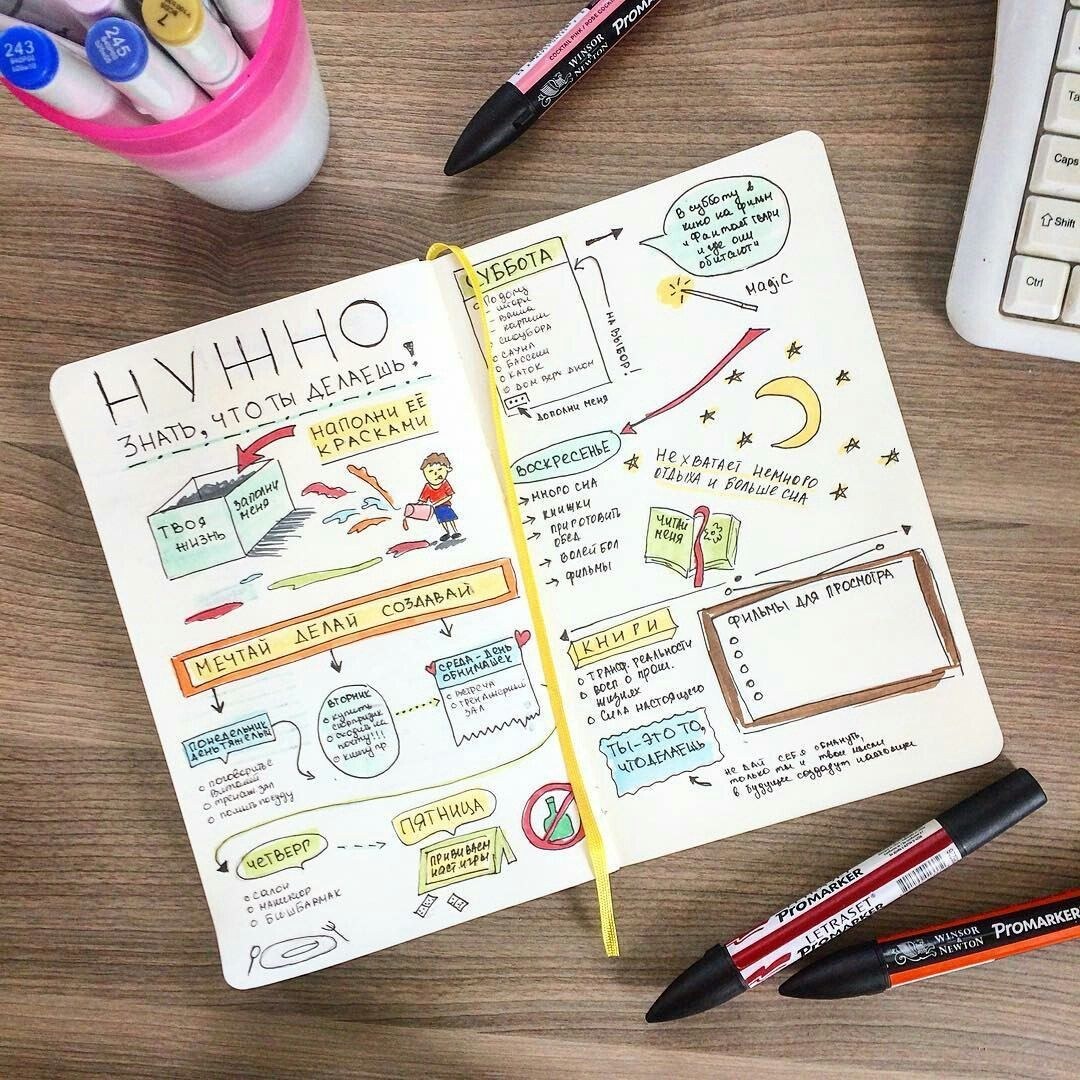 243
245
7
COCKTAIL PINK / ROSE COCKTAIL
WINSOR
& NEWTON
PROMARKER
Caps
Shift
Ctrl
НУЖНО
ЗНАТЬ, ЧТО ТЫ ДЕЛАЕШЬ!
НАПОЛНИ ЕЁ
КРАСКАМИ
ТВОЯ
ЖИЗНЬ
ЗАПОЛНИ
МЕНЯ
МЕЧТАЙ ДЕЛАЙ СОЗДАВАЙ
ПОНЕДЕЛЬНИК
ДЕНЬ ТЯЖЕЛЫЙ
тренаж зал
помыть посуду
ВТОРНИК
купить
сходить на
почту!!!
СРЕДА-ДЕНЬ
ОБНИМАШЕК
встреча
тренажерный
зал
ЧЕТВЕРГ
САЛОН
МАНИКЮР
БЕШБАРМАК
ПЯТНИЦА
НАСТ.ИГРЫ
СУББОТА
По дому
- шторы
- ванна
- картины
САУНА
БАССЕЙН
КАТОК
ДОПОЛНИ МЕНЯ
НА ВЫБОР!
В субботу в
кино на фильм
"Фантаст твари
и где они
обитают"
MAGIC
ВОСКРЕСЕНЬЕ
МНОГО СНА
КНИЖКИ
ПРИГОТОВИТЬ
ОБЕД
ВОЛЕЙБОЛ
ФИЛЬМЫ
НЕ ХВАТАЕТ НЕМНОГО
ОТДЫХА И БОЛЬШЕ СНА
ЧИТАЙ
МЕНЯ
КНИГИ
ТРАНСФ. РЕАЛЬНОСТИ
ВОСП О ПРОШ.
ЖИЗНЯХ
СИЛА НАСТОЯЩЕГО
ФИЛЬМЫ ДЛЯ ПРОСМОТРА
ТЫ-ЭТО ТО,
ЧТО ДЕЛАЕШЬ
НЕ ДАЙ СЕБЯ ОБМАНУТЬ,
только ты и твои мысли
в будущее создадут настоящее
PROMARKER
LETRASET
PROMARKER
WINSOR
& NEWTON
PROMARKER